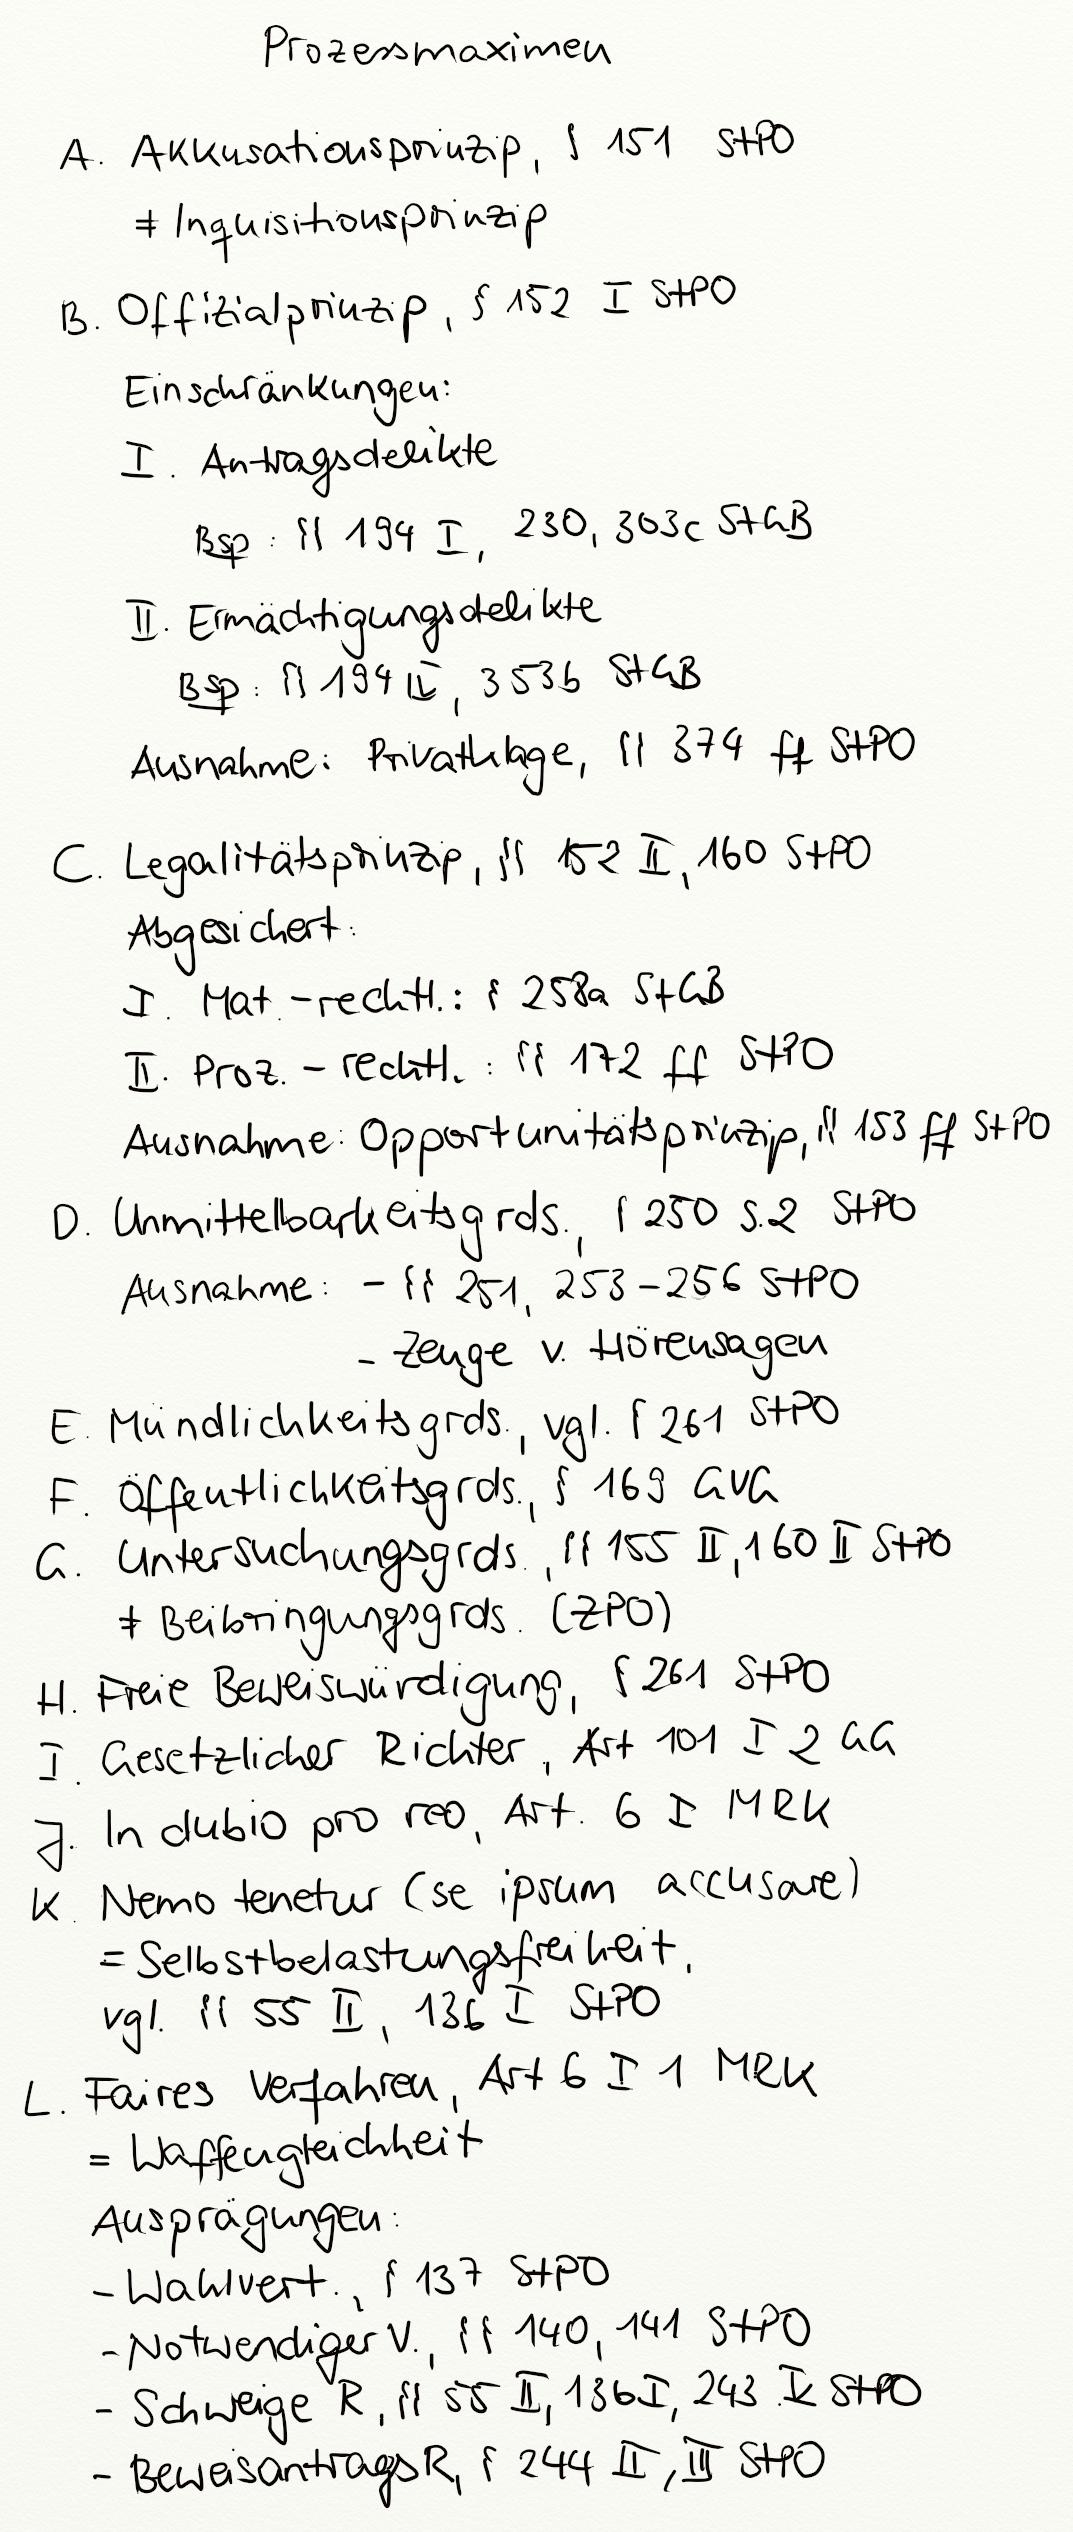 Prozessmaximen
A. Akkusationsprinzip, § 151 StPO
≠ Inquisitionsprinzip
B. Offizialprinzip, § 152 I StPO
Einschränkungen:
I. Antragsdelikte
Bsp: §§ 194 I, 230, 303c StGB
II. Ermächtigungsdelikte
Bsp: §§ 194 IV, 353b StGB
Ausnahme: Privatklage, §§ 374 ff StPO
C. Legalitätsprinzip, §§ 152 II, 160 StPO
Abgesichert:
I. Mat.-rechtl.: § 258a StGB
II. Proz.-rechtl.: §§ 172 ff StPO
Ausnahme: Opportunitätsprinzip, §§ 153 ff StPO
D. Unmittelbarkeitsgrds., § 250 S.2 StPO
Ausnahme: - §§ 251, 253-256 StPO
- Zeuge v. Hörensagen
E. Mündlichkeitsgrds., vgl. § 261 StPO
F. Öffentlichkeitsgrds., § 169 GVG
G. Untersuchungsgrds., §§ 155 II, 160 II StPO
≠ Beibringungsgrds. (ZPO)
H. Freie Beweiswürdigung, § 261 StPO
I. Gesetzlicher Richter, Art 101 I 2 GG
J. In dubio pro reo, Art. 6 I MRK
K. Nemo tenetur (se ipsum accusare)
= Selbstbelastungsfreiheit,
vgl. §§ 55 II, 136 I StPO
L. Faires Verfahren, Art 6 I 1 MRK
= Waffengleichheit
Ausprägungen:
- Wahlvert., § 137 StPO
- Notwendiger V., §§ 140, 141 StPO
- Schweige R, §§ 55 II, 136 I, 243 V StPO
- BeweisantragsR, § 244 II, III StPO